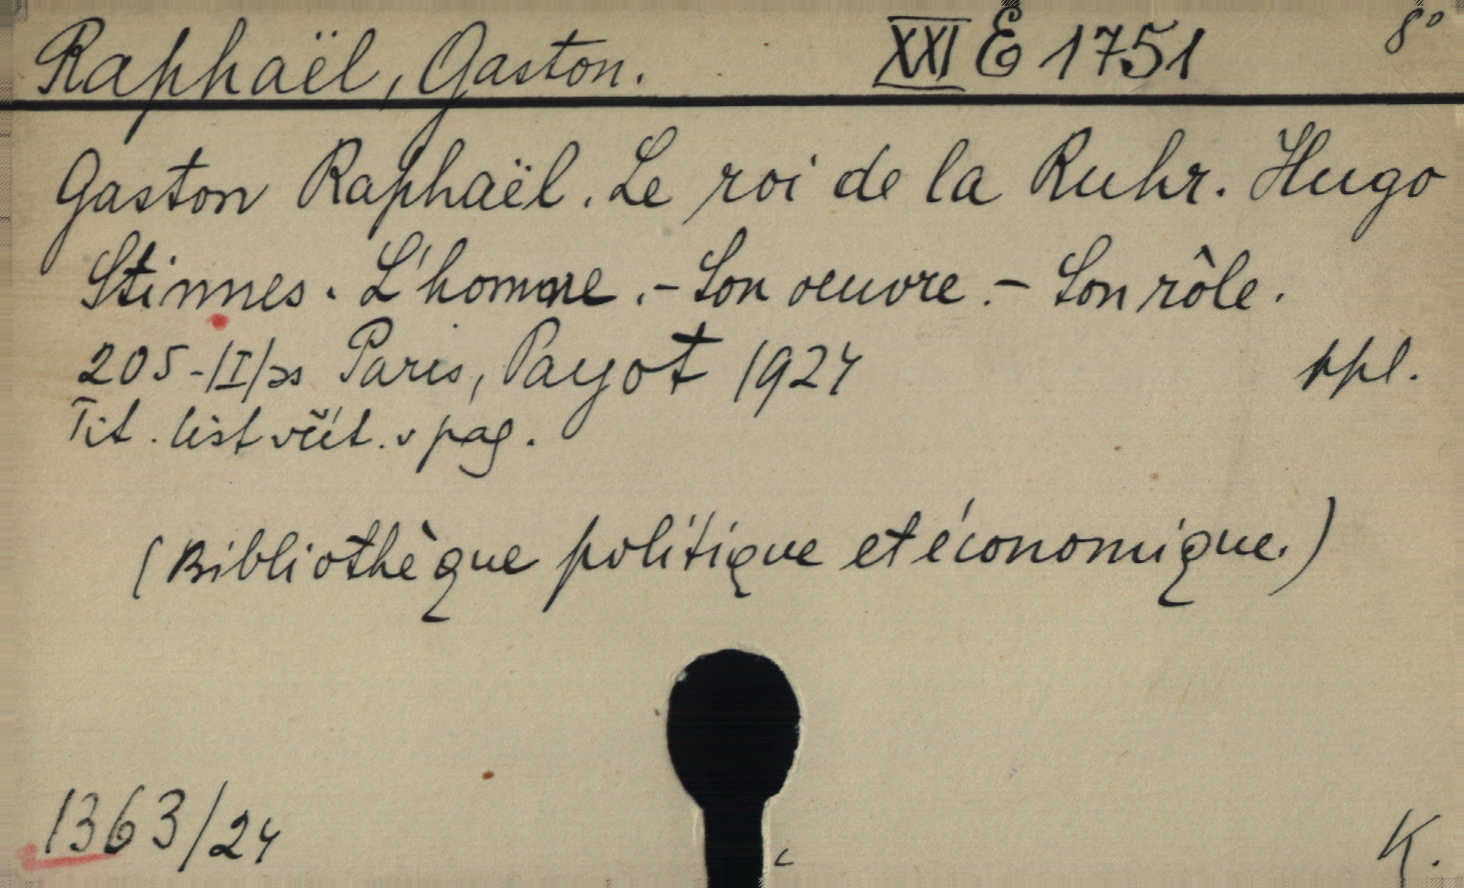 Raphaël, Gaston. XXI E 1751 8°
Gaston Raphaël. Le roi de la Ruhr. Hugo
Stinnes. L'homme. - Son oeuvre. - Son rôle.
205-/I/ss Paris, Payot 1924 ppl.
Tit. list včít. v pag.
(Bibliothèque politique et économique.)
1363/24 K.